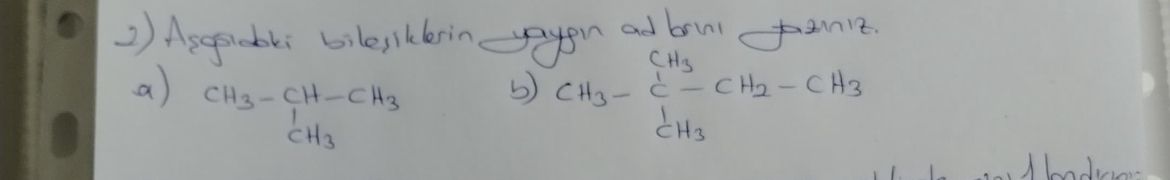 2) Aşağıdaki bileşiklerin yaygın adlarını yazınız.
a) CH3-CH-CH3
CH3
b) CH3-C-CH2-CH3
CH3
CH3